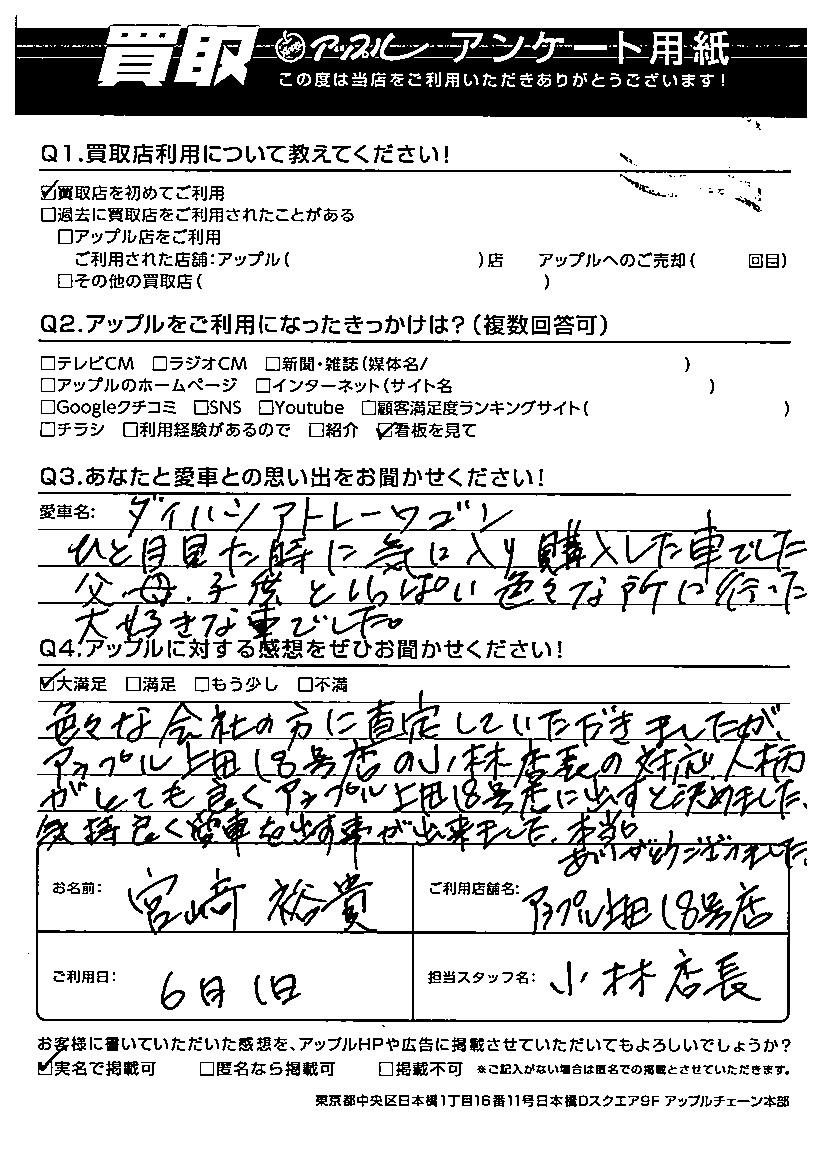 買取 アップル アンケート用紙
この度は当店をご利用いただきありがとうございます!
Q1.買取店利用について教えてください!
☑買取店を初めてご利用
□過去に買取店をご利用されたことがある
□アップル店をご利用
ご利用された店舗:アップル( )店 アップルへのご売却( 回目)
□その他の買取店( )
Q2.アップルをご利用になったきっかけは?(複数回答可)
□テレビCM □ラジオCM □新聞・雑誌(媒体名/ )
□アップルのホームページ □インターネット(サイト名 )
□Googleクチコミ □SNS □Youtube □顧客満足度ランキングサイト( )
□チラシ □利用経験があるので □紹介 ☑看板を見て
Q3.あなたと愛車との思い出をお聞かせください!
愛車名: ダイハツアトレーワゴン
ひと目見た時に気に入り購入した車でした
父、母、子供といっぱい色々な所に行った
大好きな車でした。
Q4.アップルに対する感想をぜひお聞かせください!
☑大満足 □満足 □もう少し □不満
色々な会社の方に査定していただきましたが、
アップル上田18号店の小林店長の対応、人柄
がとても良くアップル上田18号店に出すと決めました、
気持良く愛車を出す事が出来ました、本当に
ありがとうございました、
お名前: 宮崎 裕貴 ご利用店舗名: アップル上田18号店
ご利用日: 6月1日 担当スタッフ名: 小林店長
お客様に書いていただいた感想を、アップルHPや広告に掲載させていただいてもよろしいでしょうか?
☑実名で掲載可 □匿名なら掲載可 □掲載不可 ※ご記入がない場合は匿名での掲載とさせていただきます。
東京都中央区日本橋1丁目16番11号日本橋Dスクエア9F アップルチェーン本部